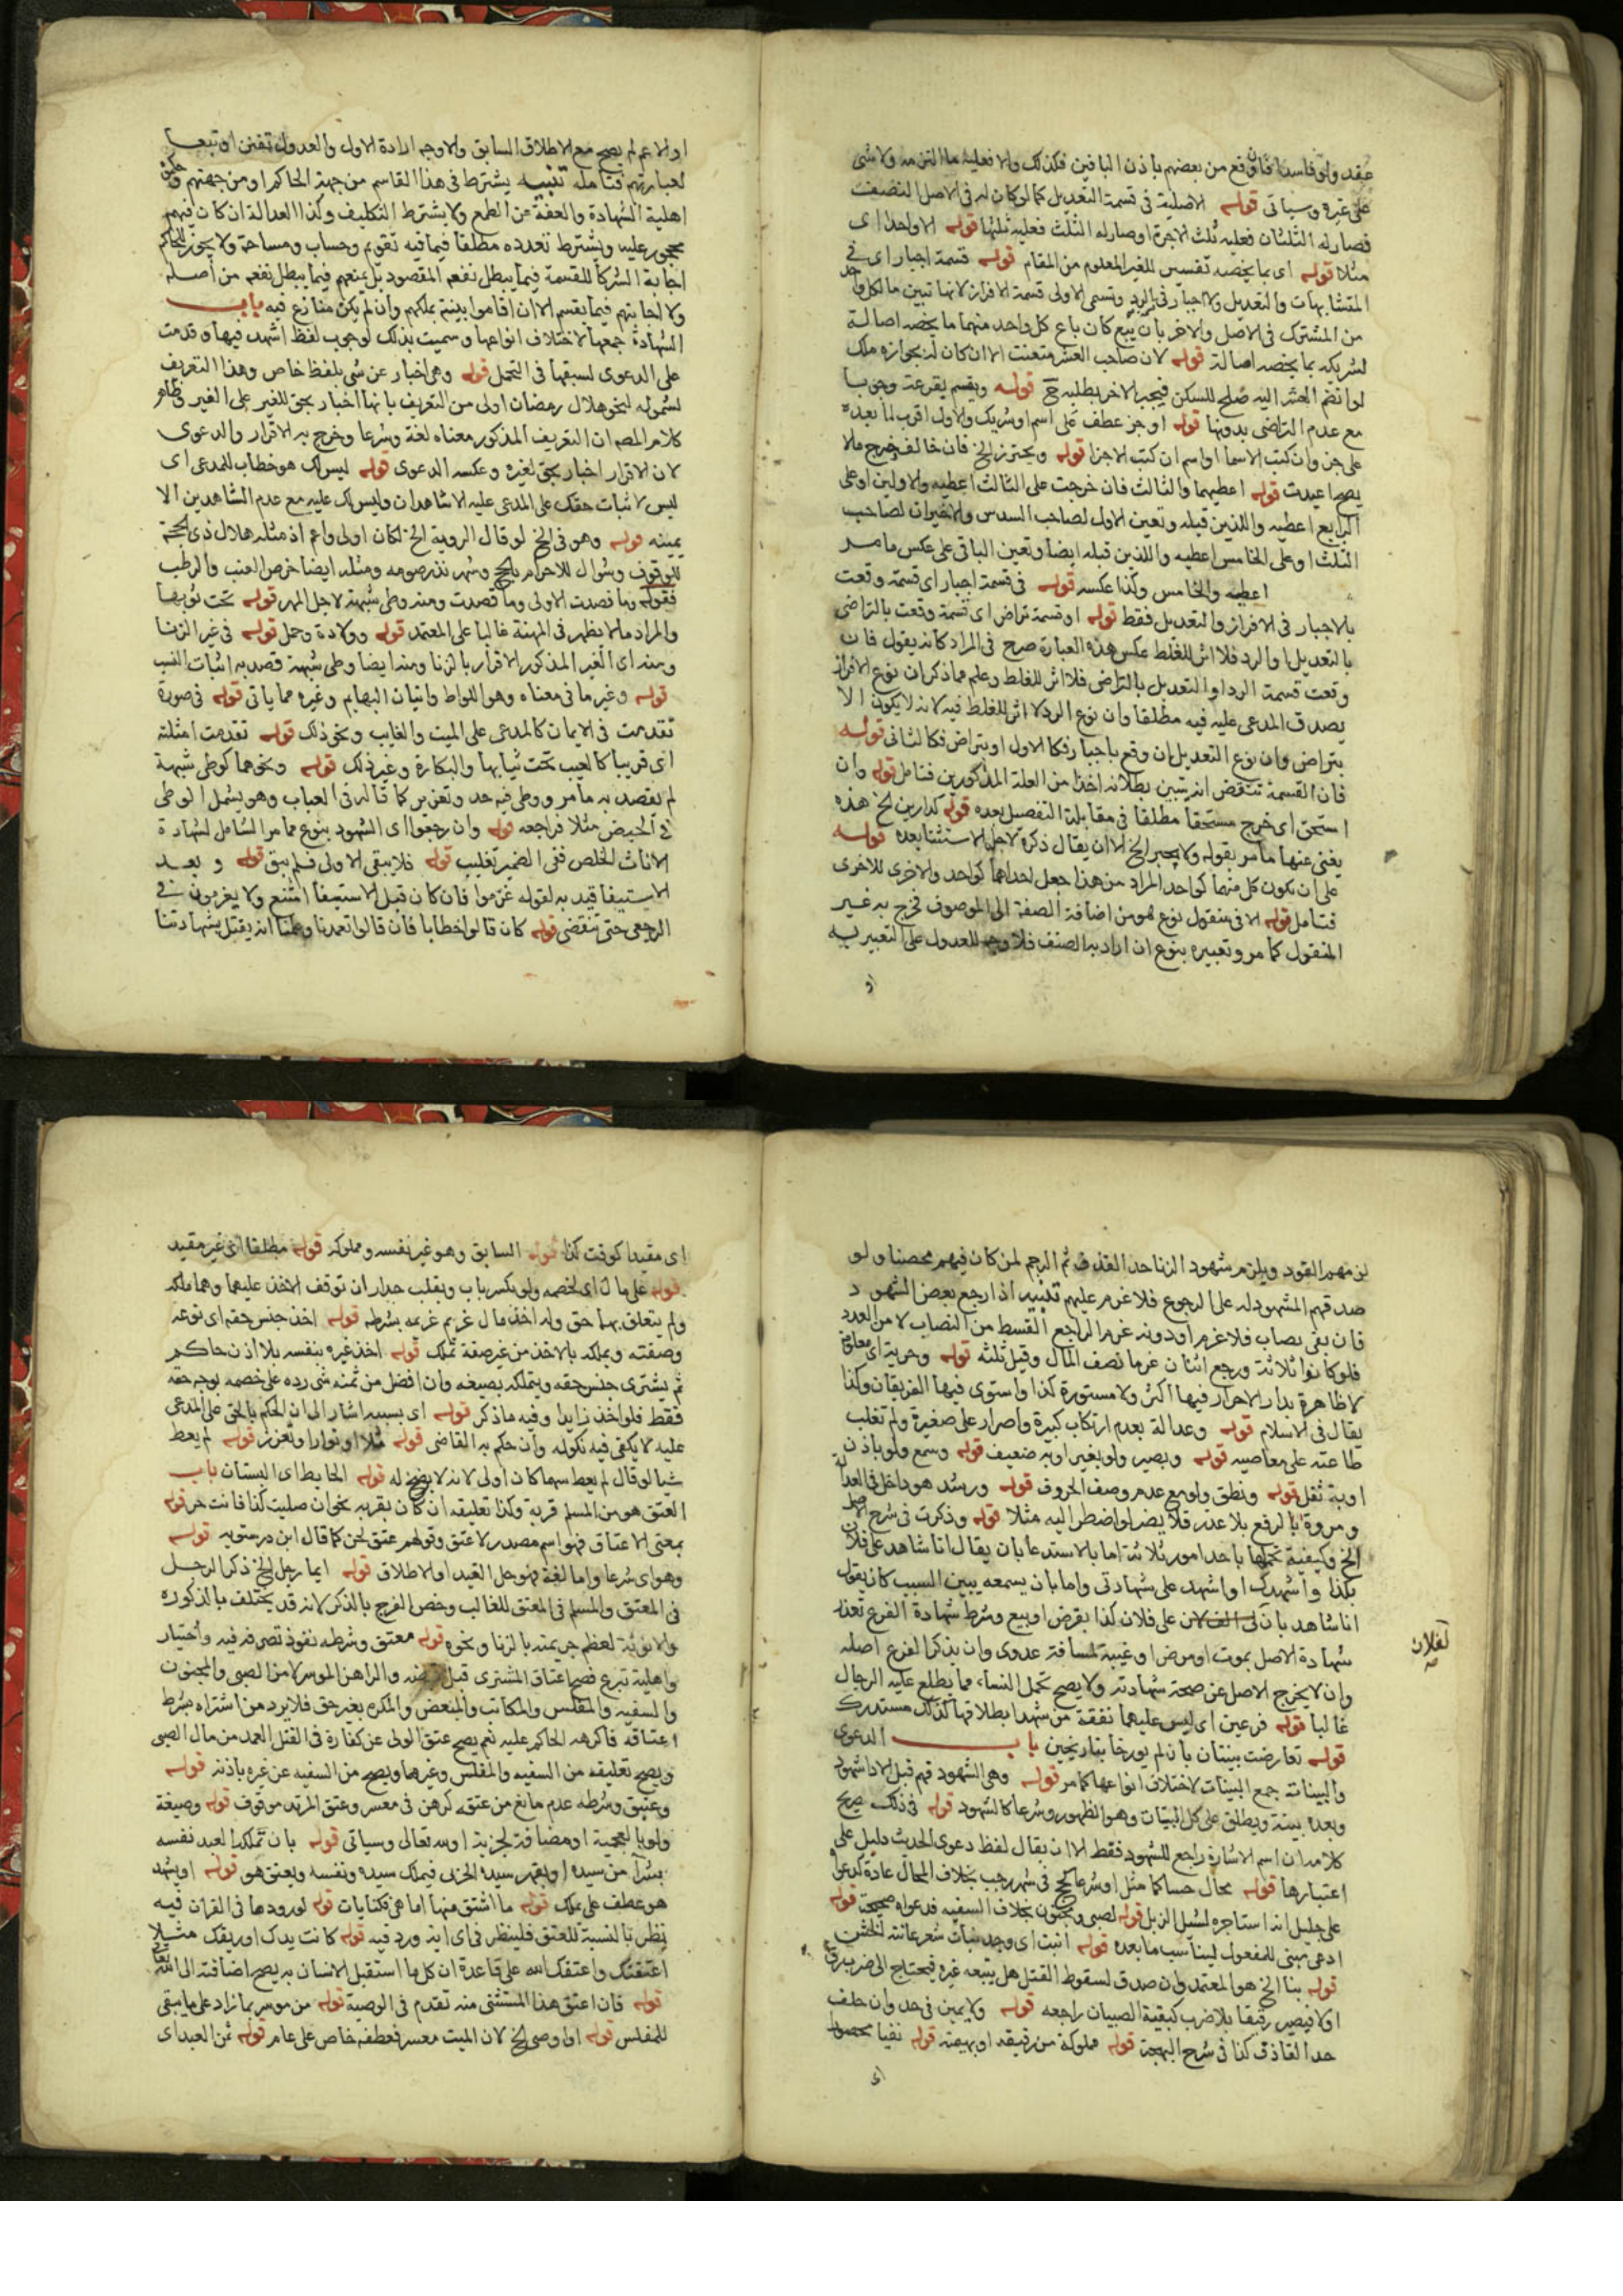 عقد ولو فاسدا فان وقع من بعضهم باذن الباقين فكذلك والا فعليه ما التزمه ولا شى
على غيره وسياتى قوله الاصلية فى قسمة التعديل كما لو كان له فى الاصل النصف
فصار له الثلثان فعليه ثلث الاجرة او صار له الثلث فعليه ثلثها قوله الا واحدا اى
مثلا قوله اى بما يخصه تفسير للغير المعلوم من المقام قوله قسمة اجبار اى فى
المتشابهات والتعديل ولا اجبار فى الرد وتسمى الاولى قسمة الافراز لانها تبين ما لكل واحد
من المشترك فى الاصل والاخر بان يبيع كان باع كل واحد منهما ما يخصه اصالة
لشريكه بما يخصه اصالة قوله لان صاحب العشر متعنت الا ان كان له بجواره ملك
لو انضم العشر اليه صلح للسكن فيجبر الاخر بطلبه ح قوله ويقسم بقرعة وجوبا
مع عدم التراضى بدونها قوله او جز عطف على اسم او شريك والاول اقرب لما بعده
على جز وان كتب الاسما او اسم ان كتب الاجزا قوله ويحترز الخ فان خالف خرج ملا
يصح اعيدت قوله اعطيهما والثالث فان خرجت على الثالث اعطيه والاولين او على
الرابع اعطيه واللذين قبله وتعين الاول لصاحب السدس والاخيران لصاحب
الثلث او على الخامس اعطيه واللذين قبله ايضا وتعين الباقى على عكس ما مر
اعطيه والخامس وكذا عكسه قوله فى قسمة اجبار اى قسمة وقعت
بالاجبار فى الافراز والتعديل فقط قوله او قسمة تراض اى قسمة وقعت بالتراضى
بالتعديل او الرد فلا اثر للغلط عكس هذه العبارة صرح فى المراد كانه يقول فان
وقعت قسمة الرد او التعديل بالتراضى فلا اثر للغلط وعلم مما ذكر ان نوع الافراز
يصدق المدعى عليه فيه مطلقا وان نوع الرد لا اثر للغلط فيه لانه لا يكون الا
بتراض وان نوع التعديل ان وقع باجبار فكالاول او بتراض فكالثانى قوله
فان القسمة تنتقض انه يتبين بطلانه اخذا من العلة المذكورين فتامل قوله وان
استحق اى خرج مستحقا مطلقا فى مقابلة التفصيل بعده قوله كدارين الخ هذه
يغنى عنها ما مر بقوله ولا يجبر الخ الا ان يقال ذكره لاجل الاستثنا بعده قوله
على ان يكون كل منهما كواحد المراد من هذا جعل احداهما كواحد والاخرى للاخرى
فتامل قوله الا فى منقول نوع هو من اضافة الصفة الى الموصوف خرج به غير
المنقول كما مر وتعبيره بنوع ان اراد به الصنف فلا وجه للعدول على التعبير به
او
او الاعم لم يصح مع الاطلاق السابق والاوجه ارادة الاول والعدول تفنن او تبعا
لعبارتهم فتامله تنبيه يشترط فى هذا القاسم من جهة الحاكم او من جهتهم
اهلية الشهادة والعفة عن الطمع ولا يشترط التكليف وكذا العدالة ان كان فيهم
محجور عليه ويشترط تعدده مطلقا فيما فيه تقويم وحساب ومساحة ولا يجوز للحاكم
اجابة الشركا للقسمة فيما يبطل نفعه المقصود بل يمنعهم فيما يبطل نفعه من اصله
ولا اجابتهم فيما تقسم الا ان اقاموا بينة بملكهم وان لم يكن منازع فيه باب
الشهادة جمعها لاختلاف انواعها وسميت بذلك لوجوب لفظ اشهد فيها وقدمت
على الدعوى لسبقها فى التحمل قوله وهى اخبار عن شى بلفظ خاص وهذا التعريف
لشموله لنحو هلال رمضان اولى من التعريف بانها اخبار بحق للغير على الغير وظاهر
كلام المص ان التعريف المذكور معناه لغة وشرعا وخرج به الاقرار والدعوى
لان الاقرار اخبار بحق لغيره وعكسه الدعوى قوله ليس لك هو خطاب للمدعى اى
ليس لاثبات حقك على المدعى عليه الا شاهدان وليس لك عليه مع عدم الشاهدين الا
يمينه قوله وهو فى الخ لو قال الروية الخ لكان اولى واعم اذ مثله هلال ذى الحجة
للوقوف وشوال للاحرام بالحج وشهر نذر صومه ومثله ايضا خرص العنب والرطب
فقوله وما قصدت الاولى وما قصدت ومنه وطى شبهة لاجل المهر قوله تحت ثوبها
والمراد ما لا يظهر فى المهنة غالبا على المعتمد قوله وولادة وحمل قوله فى غير الزنا
ومنه اى الغير المذكور الاقرار بالزنا ومنه ايضا وطى شبهة قصد به اثبات النسب
قوله وغير ما فى معناه وهو اللواط واتيان البهايم وغيره مما ياتى قوله فى صورة
تقدمت فى الايمان كالمدعى على الميت والغايب ونحو ذلك قوله تقدمت امثلته
اى قريبا كالعيب تحت ثيابها والبكارة وغير ذلك قوله ونحوهما كوطى شبهة
لم يقصد به ما مر ووطى فيه حد وتعزير كما قاله فى العباب وهو يشمل الوطى
فى الحيض مثلا فراجعه قوله وان رجعوا اى الشهود بنوع مما مر الشامل لشهادة
الاناث الخلص ففى الضمير تغليب قوله فلا يبقى الاولى فلم يبق قوله وبعد
الاستيفا قيد به لقوله غرموا فان كان قبل الاستيفا امتنع ولا يغرمون فى
الرجعى حتى تنقضى قوله كان قالوا اخطانا فان قالوا تعمدنا وعلمنا انه يقتل بشهادتنا
لزمهم القود ويلزم شهود الزنا حد القذف ثم الرجم لمن كان فيهم محصنا ولو
صدقهم المشهود له على الرجوع فلا غرم عليهم تنبيه اذا رجع بعض الشهود
فان بقى نصاب فلا غرم او دونه غرم الراجع القسط من النصاب لا من العدد
فلو كانوا ثلاثة ورجع اثنان غرما نصف المال وقيل ثلثه قوله وحرية اى
لا ظاهرة بدار الاحرار فيها اكثر ولا مستورة كذا واستوى فيها الفريقان وكذا
يقال فى الاسلام قوله وعدالة بعدم ارتكاب كبيرة واصرار على صغيرة ولم تغلب
طاعته على معاصيه قوله وبصير ولو بغير او به ضعيف قوله وسمع ولو باذن
او به ثقل قوله ونطق ولو مع عدم وصف الحروف قوله ورشد هو داخل فى العدالة
ومروة بالرفع بلا عذر فلا يضر لو اضطر اليه مثلا قوله وذكرت فى شرح الاصل
الخ وكيفية تحملها باحد امور ثلاثة اما بالاستدعا بان يقال انا شاهد على فلان
بكذا واشهدك او اشهد على شهادتى واما بان يسمعه يبين السبب كان يقول
انا شاهد بان على فلان كذا بقرض او بيع وشرط شهادة الفرع تعذر
لفلان
شهادة الاصل بموت او مرض او غيبة لمسافة عدوى وان يذكر الفرع اصله
وان لا يخرج الاصل عن صحة شهادته ولا يصح تحمل النساء مما يطلع عليه الرجال
غالبا قوله فرعين اى ليس عليهما نفقة من شهدا بطلاقها كذلك مستدرك
قوله تعارضت بينتان بان لم يورخا بتاريخين باب الدعوى
والبينات جمع البينات لاختلاف انواعها كما مر قوله وهى الشهود فهم قبل الاداء شهود
وبعده بينة ويطلق على كل البينات وهو الظهور وشرعا كالشهود قوله فى ذلك صريح
كلامه ان اسم الاشارة راجع للشهود فقط الا ان يقال لفظ دعوى الحديث دليل على
اعتبارها قوله محال حسا كما مثل او شرعا كحج فى شهر رجب بخلاف المحال عادة كدعوا
على جليل انه استاجره لشيل الزبل قوله لصبى ومجنون بخلاف السفيه فدعواه صحيحة قوله
ادعى مبنى للمفعول ليناسب ما بعده قوله انبت اى وجد نبات شعر عانته الخشن
قوله بنا الخ هو المعتمد وان صدق لسقوط القتل هل يتبعه غيره فيحتاج الى ضرب
اولا فيصير رقيقا بلا ضرب كبقية الصبيان راجعه قوله ولا يمين فى حد وان حلف
حد القاذف كذا فى شرح البهجة قوله مملوكة من رقيقه او بهيمته قوله نفيا محصورا
اى
اى مقيدا كوقت كذا قوله السابق وهو غير نفسه ومملوكه قوله مطلقا اى غير مقيد
قوله على مال اى لخصمه ولو بكسر باب ونقب جدار ان توقف الاخذ عليهما وهما ملكه
ولم يتعلق بهما حق وله اخذ مال غريم غريمه بشرطه قوله اخذ جنس حقه اى نوعه
وصفته ويملكه بالاخذ من غير صفة تملك قوله اخذ غيره بنفسه بلا اذن حاكم
ثم يشترى جنس حقه ويتملكه بصيغة وان افضل من ثمنه شى رده على خصمه بوجه حقه
فقط فلو اخذ زايدا وفيه ما ذكر قوله اى بسببه اشار الى ان الحكم بالحق على المدعى
عليه لا يكفى فيه نكوله وان حكم به القاضى قوله مثلا او نوارا وتعزز قوله لم يعط
شيا لو قال لم يعط سهما كان اولى لانه لا يضح له قوله الحايط اى البستان باب
العتق هو من المسلم قربة وكذا تعليقه ان كان بقربة نحو ان صليت كذا فانت حر قوله
بمعنى الاعتاق فهو اسم مصدر لاعتق وقولهم عتق لحن كما قال ابن درستويه قوله
وهو اى شرعا واما لغة فهو حل القيد او الاطلاق قوله ايما رجل الخ ذكر الرجل
فى المعتق والمسلم فى المعتق للغالب وخص الفرج بالذكر لانه قد يختلف بالذكورة
والانوثة لعظم جريمته بالزنا ونحوه قوله معتق وشرطه نفوذ تصرفه فيه واختيار
واهلية تبرع فصح اعتاق المشترى قبل قبضه والراهن الموسر لا من الصبى والمجنون
والسفيه والمفلس والمكاتب والمبعض والمكره بغير حق فلا يرد من اشتراه بشرط
اعتاقه فاكرهه الحاكم عليه نعم يصح عتق الولى عن كفارة فى القتل العمد من مال الصبى
ويصح تعليقه من السفيه والمفلس وغيرهما ويصح من السفيه عن غيره باذنه قوله
وعتيق وشرطه عدم مانع من عتقه كرهن فى معسر وعتق المرتد موقوف قوله وصيغة
ولو بالعجمية او مضافة لجزية او لله تعالى وسياتى قوله بان تملك العبد نفسه
بشرآ من سيده او بقهر سيده الحربى فيملك سيده ونفسه ويعتق هو قوله او يشهد
هو عطف على يملك قوله ما اشتق منها اما هى فكنايات قوله لورودها فى القران فيه
نظر بالنسبة للعتق فلينظر فى اى اية ورد فيه قوله كانت يدك او ريقك مثلا
اعتقتك واعتقك الله على قاعدة ان كل ما استقبل الانسان به يصح اضافته الى الله تعالى
قوله فان اعتق هذا المستثنى منه تقدم فى الوصية قوله من موسر بما زاد على ما يبقى
للمفلس قوله او اوصى الخ لان الميت معسر فعطفه خاص على عام قوله ثمن العبد اى